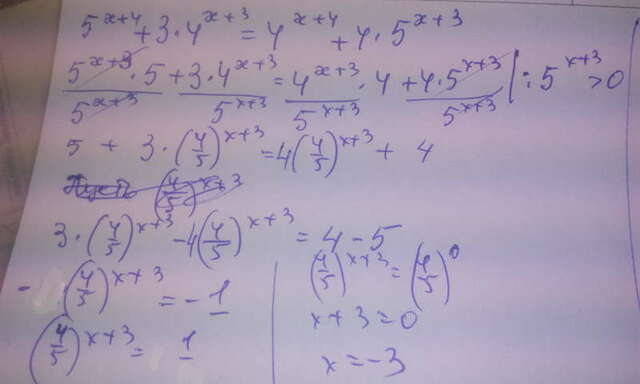 5^{x+4} + 3·4^{x+3} = 4^{x+4} + 4·5^{x+3}
\frac{5^{x+3}·5}{5^{x+3}} + \frac{3·4^{x+3}}{5^{x+3}} = \frac{4^{x+3}·4}{5^{x+3}} + \frac{4·5^{x+3}}{5^{x+3}} | : 5^{x+3} > 0
5 + 3·(\frac{4}{5})^{x+3} = 4(\frac{4}{5})^{x+3} + 4
(\frac{4}{5})^{x+3}
3·(\frac{4}{5})^{x+3} - 4(\frac{4}{5})^{x+3} = 4 - 5
-(\frac{4}{5})^{x+3} = -1
(\frac{4}{5})^{x+3} = 1
(\frac{4}{5})^{x+3} = (\frac{4}{5})^{0}
x+3=0
x=-3